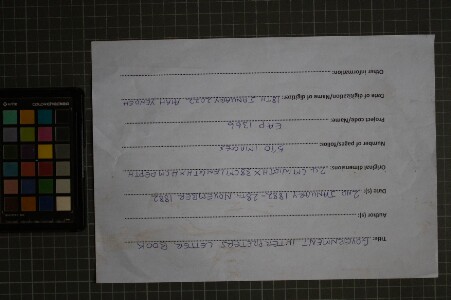 Title: GOVERNMENT INTERPRETERS LETTER BOOK
Author (s):
Date (s): 2ND JANUARY 1882 - 28TH NOVEMBER 1882
Original dimensions: 24CM WIDTH X 38CM LENGTH X 4CM DEPTH
Number of pages/folios: 510 IMAGES
Project code/Name: EAP 1366
Date of digitization/Name of digitizer: 18TH JANUARY 2022,
Other information: